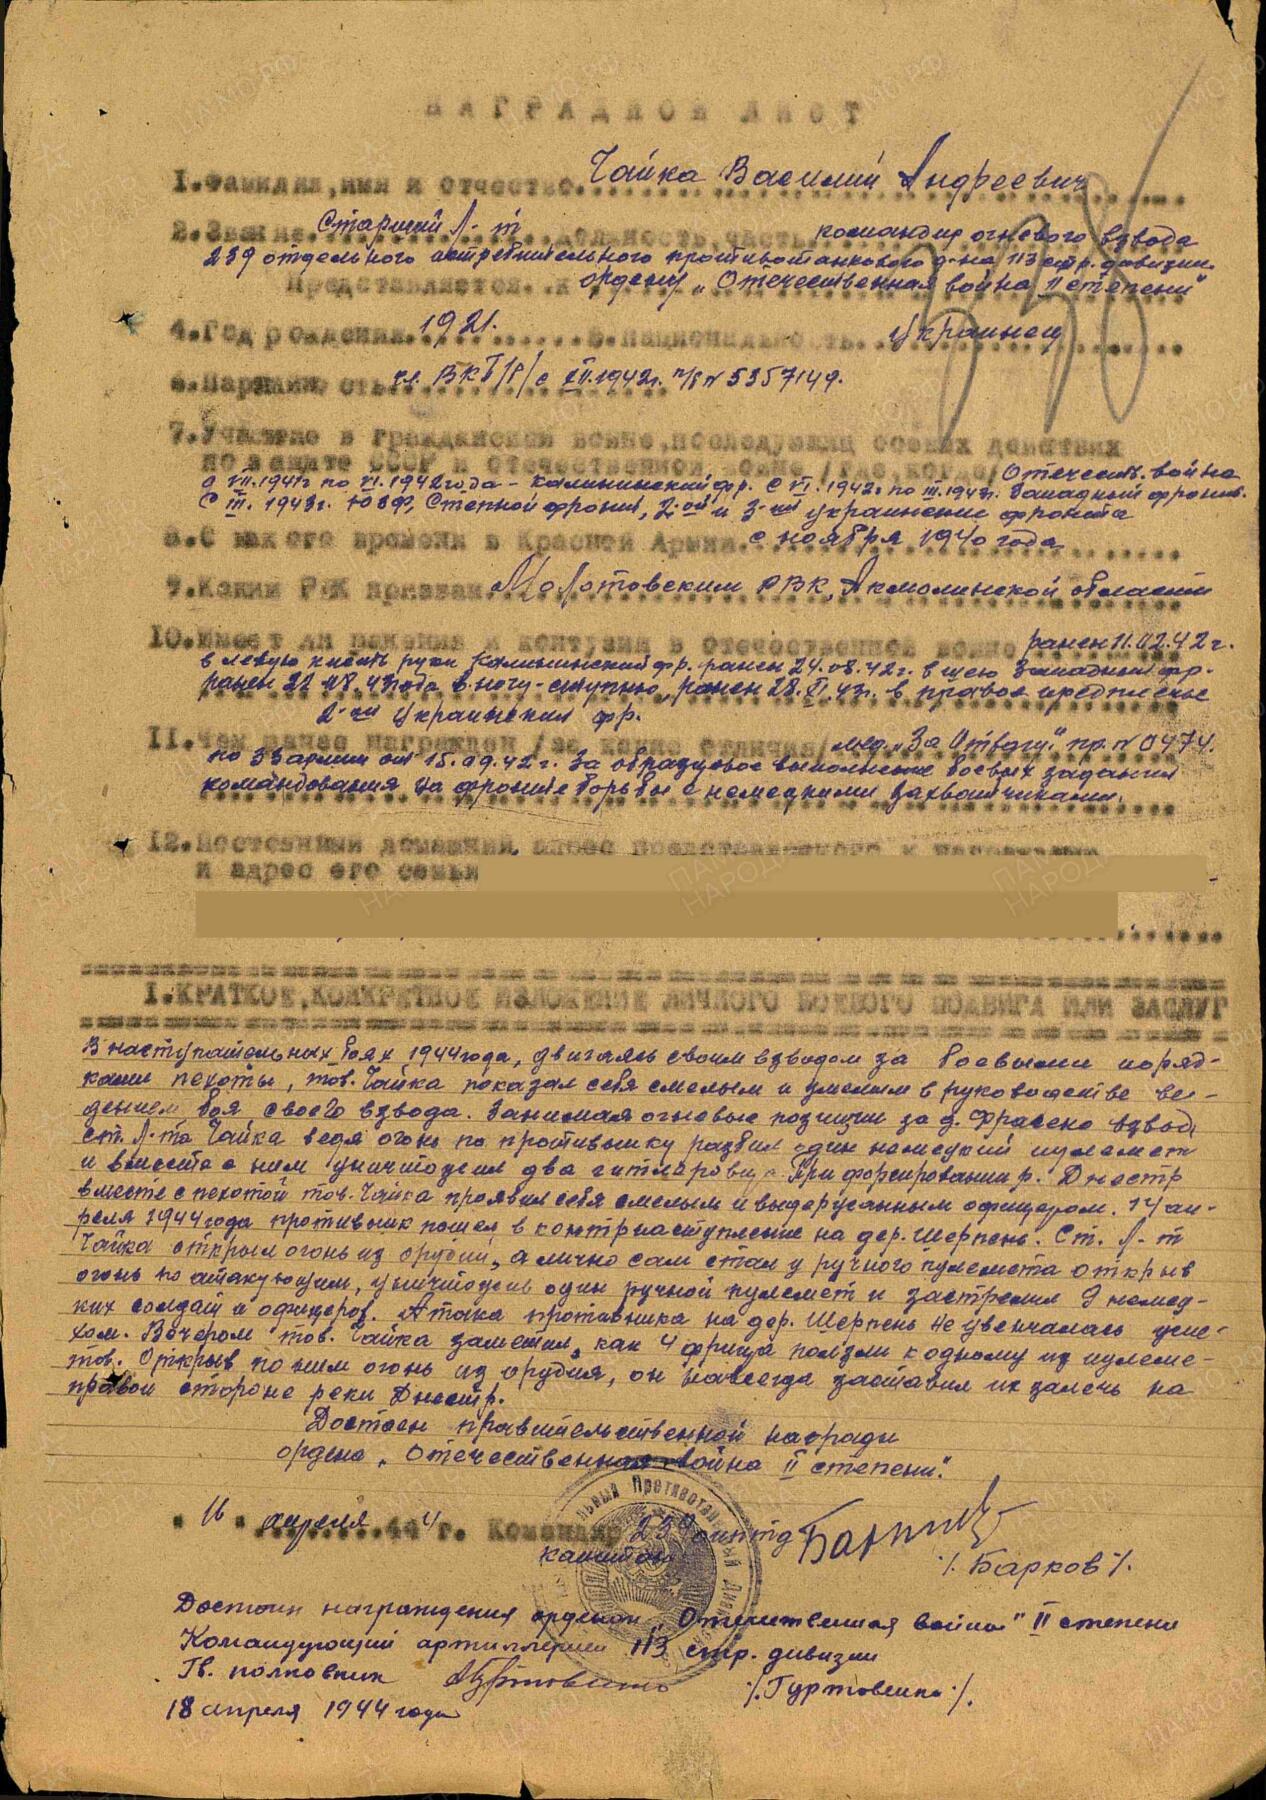 НАГРАДНОЙ ЛИСТ
1. Фамилия, имя и отчество Чайка Василий Андреевич
2. Звание Старший Л-т должность, часть командир огневого взвода
239 отдельного истребительного противотанкового д-на 113 стр. дивизии.
Представляется к ордену „Отечественная война II степени"
4. Год рождения 1921. 5. Национальность украинец
6. Партийность чл. ВКП/б/ с XII.1942г. п/б № 5357149.
7. Участие в гражданской войне, последующих боевых действиях
по защите СССР и отечественной войне /где, когда/ Отечеств. война
с VII.1941г по VI.1942 года - Калининский фр. С VI.1942г по III.1943г. Западный фронт.
С III.1943г. ЮЗФ, Степной фронт, 2-ой и 3-ий украинские фронта
8. С какого времени в Красной Армии с ноября 1940 года
9. Каким РВК призван Молотовским РВК, Акмолинской области
10. Имеет ли ранения и контузии в отечественной войне ранен 11.02.42г.
в левую кисть руки Калининский фр. ранен 24.08.42г. в шею Западный фр.
ранен 22 года в ногу-ступню, ранен 28.XI.43г. в правое предплечье
2-ий украинский фр.
11. Чем ранее награжден /за какие отличия/ мед. „За Отвагу" пр. № 0474.
по 33 армии от 15.09.42г. За образцовое выполнение боевых задания
командования на фронте борьбы с немецкими захватчиками.
12. Постоянный домашний адрес представляемого к награждению
и адрес его семьи
I. КРАТКОЕ, КОНКРЕТНОЕ ИЗЛОЖЕНИЕ ЛИЧНОГО БОЕВОГО ПОДВИГА ИЛИ ЗАСЛУГ
В наступательных боях 1944 года, двигаясь своим взводом за боевыми поряд-
ками пехоты, тов. Чайка показал себя смелым и умелым в руководстве ве-
дением боя своего взвода. Занимая огневые позиции за д. взвод
ст. Л-та Чайка ведя огонь по противнику разбил один немецкий пулемет
и вместе с ним уничтожил два гитлеровца. При форсировании р. Днестр
вместе с пехотой тов. Чайка проявил себя смелым и выдержанным офицером. 14 ап-
реля 1944 года противник пошел в контрнаступление на дер. Шерпень. Ст. Л-т
Чайка открыл огонь из орудий, а лично сам стал у ручного пулемета открыв
огонь по атакующим, уничтожив один ручной пулемет и застрелил 9 немец-
ких солдат и офицеров. Атака противника на дер. Шерпень не увенчалась успе-
хом. Вечером тов. Чайка заметил, как 4 фрица ползли к одному из пулеме-
тов. Открыв по ним огонь из орудия, он навсегда заставил их залечь на
правой стороне реки Днестр.
Достоен правительственной награды
ордена „Отечественная война II степени".
16 апреля 1944 г. Командир 239 оиптд
капитан /Барков/.
Достоин награждения орденом „Отечественная война" II степени
Командующий артиллерией 113 стр. дивизии
Гв. полковник /Гуртовенко/.
18 апреля 1944 года